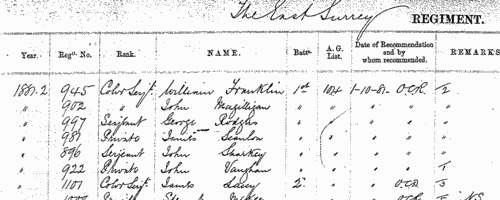 The East Surrey REGIMENT.
Year. Regtl. No. Rank. NAME. Battn. A. G. List. Date of Recommendation and by whom recommended. REMARKS
1881-2 945 Color Serjt. William Franklin 1st 104 1-10-81- O.C.R. 2
" 902 " John Magilligan " " " " "
" 997 Serjeant George Rodgers " " " " "
" 987 Private James Scanlon " " " " "
" 896 Serjeant John Sharkey " " " " "
" 922 Private John Vaughan " " " " 1
" 1101 Color Serjt. James Lacey 2 " " O.C.R. 3